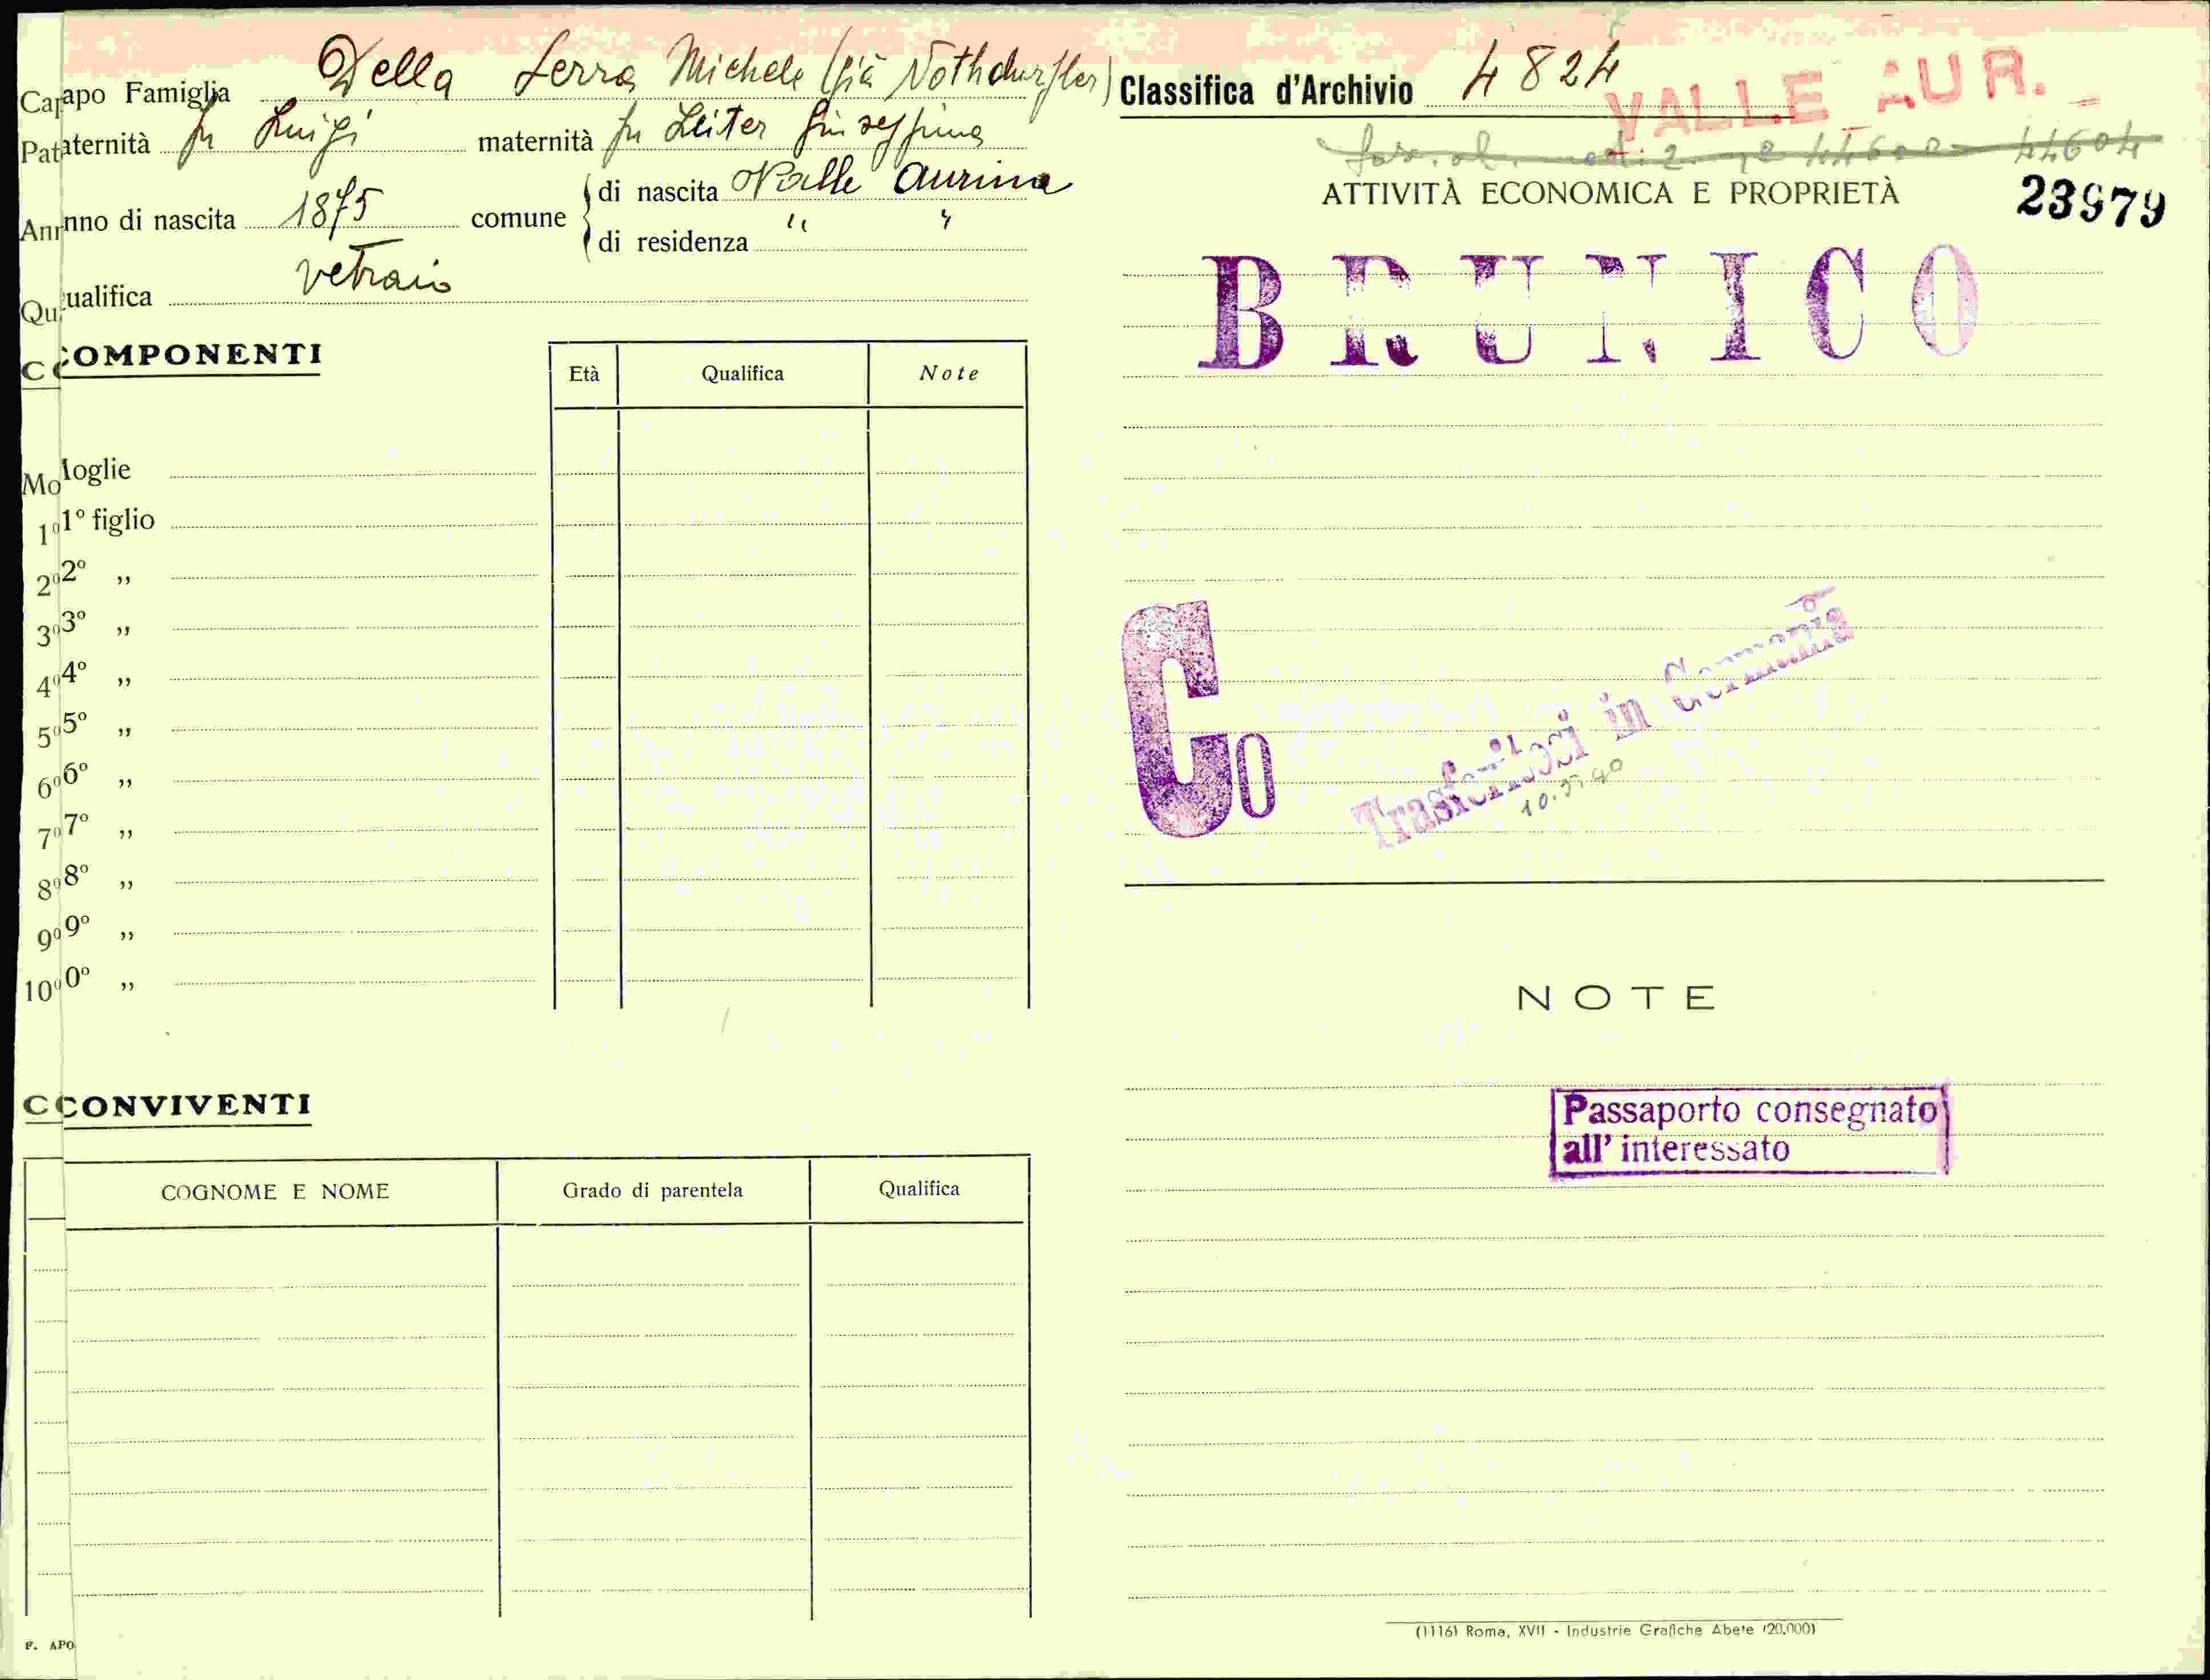 Capo Famiglia Della Serra Michele (già Nothdurfter)
Paternità fu Luigi maternità fu Leiter Giuseppina
Anno di nascita 1875 comune di nascita Valle Aurina
di residenza " "
Qualifica vetraio
COMPONENTI
Età Qualifica Note
Moglie
1° figlio
2° „
3° „
4° „
5° „
6° „
7° „
8° „
9° „
10° „
CONVIVENTI
COGNOME E NOME Grado di parentela Qualifica
F. APO
Classifica d'Archivio 4824
VALLE AUR.
44604
ATTIVITÀ ECONOMICA E PROPRIETÀ
23979
BRUNICO
Co
Trasferitosi in Germania
NOTE
Passaporto consegnato
all' interessato
(1116) Roma, XVII - Industrie Grafiche Abete (20.000)